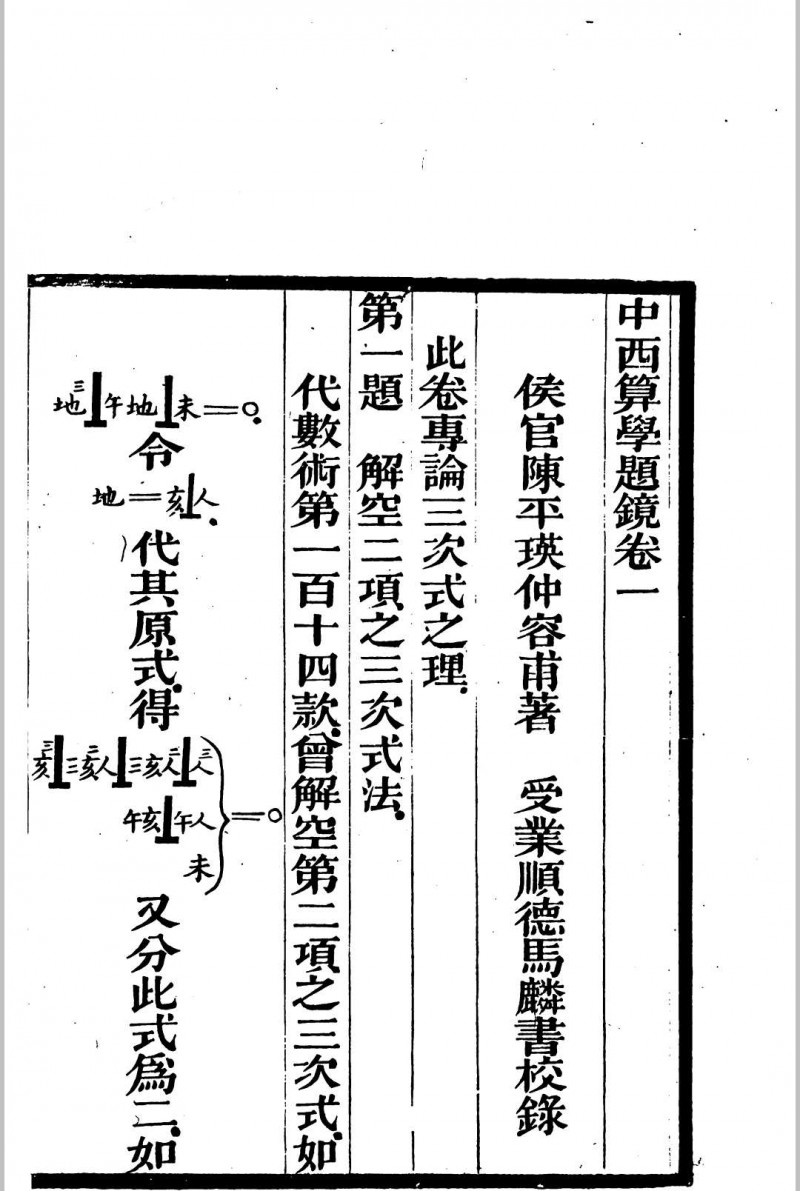 中西算學題鏡卷一
侯官陳平瑛仲容甫著 受業順德馬麟書校錄
此卷專論三次式之理
第一題 解空二項之三次式法
代數術第一百十四款曾解空第二項之三次式如
地三⊥午地⊥未=○ 令 地=亥⊥人 代其原式得 亥三⊥三亥二人⊥三亥人二⊥人三 午亥⊥午人 未 =○ 又分此式爲二如